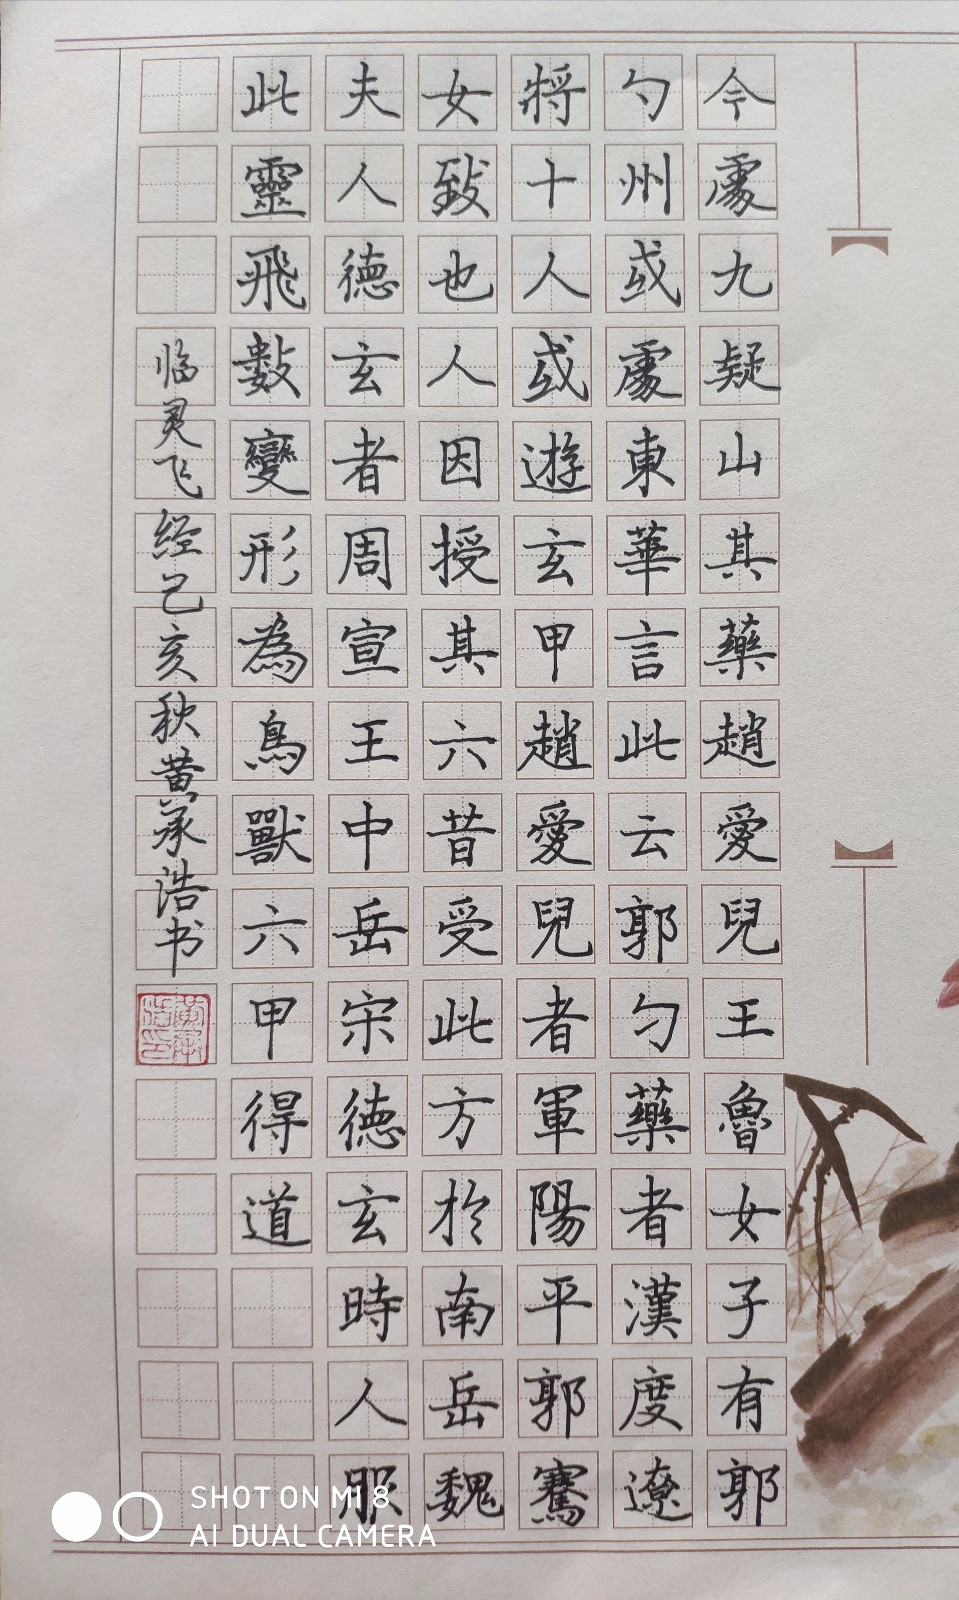 今處九疑山其藥趙愛兒王魯女子有郭
勺州或處東華言此云郭勺藥者漢度遼
將十人或遊玄甲趙愛兒者軍陽平郭騫
女致也人因授其六昔受此方於南岳魏
夫人德玄者周宣王中岳宋德玄時人服
此靈飛數變形為鳥獸六甲得道
临灵飞经己亥秋黄承浩书
SHOT ON MI 8
AI DUAL CAMERA